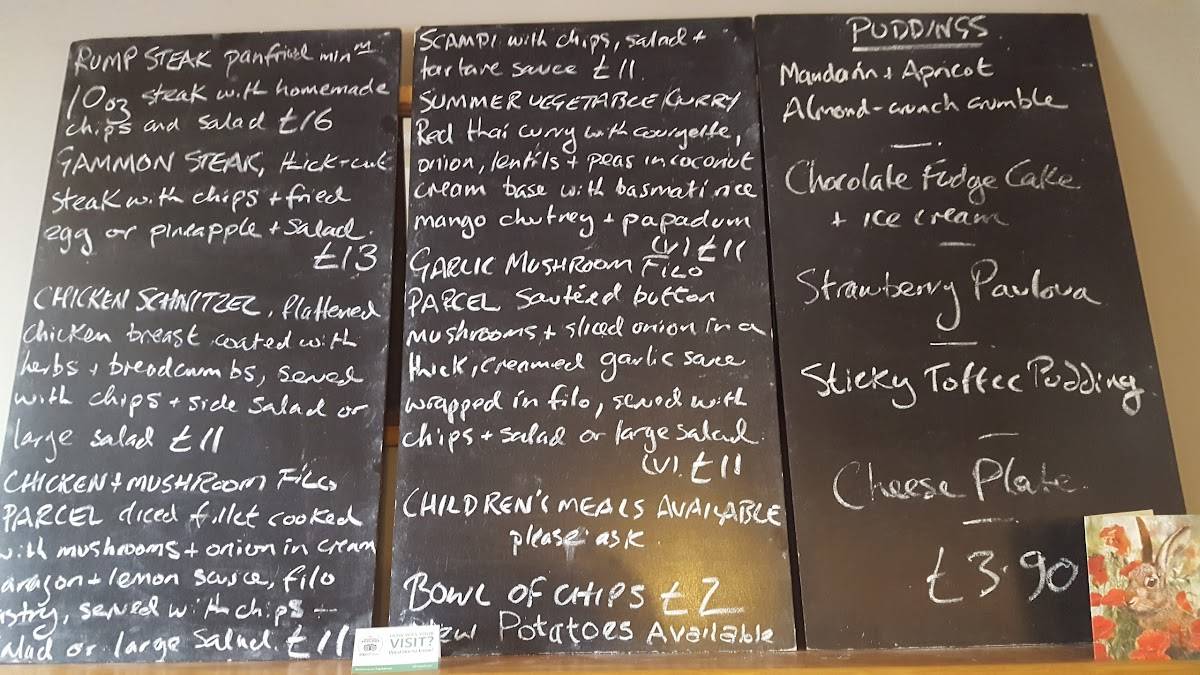 RUMP STEAK panfried min m
10oz steak with homemade
chips and salad £16
GAMMON STEAK, thick-cut
steak with chips + fried
egg or pineapple + salad.
£13
CHICKEN SCHNITZEL, flattened
chicken breast coated with
herbs + breadcrumbs, served
with chips + side salad or
large salad £11
CHICKEN + MUSHROOM FILO
PARCEL diced fillet cooked
with mushrooms + onion in cream
aragon + lemon sauce, filo
stry, served with chips +
alad or large salad. £11
SCAMPI with chips, salad +
tartare sauce £11
SUMMER VEGETABLE CURRY
Red thai curry with courgette,
onion, lentils + peas in coconut
cream base with basmati rice
mango chutney + papadum
(v) £11
GARLIC MUSHROOM FILO
PARCEL sautéed button
mushrooms + sliced onion in a
thick, creamed garlic sauce
wrapped in filo, served with
chips + salad or large salad.
(v). £11
CHILDREN'S MEALS AVAILABLE
please ask.
BOWL OF CHIPS £2
New Potatoes Available
PUDDINGS
Mandarin + Apricot
Almond-crunch crumble
Chocolate Fudge Cake
+ ice cream
Strawberry Pavlova
Sticky Toffee Pudding
Cheese Plate.
£3.90
HOW WAS YOUR
VISIT?